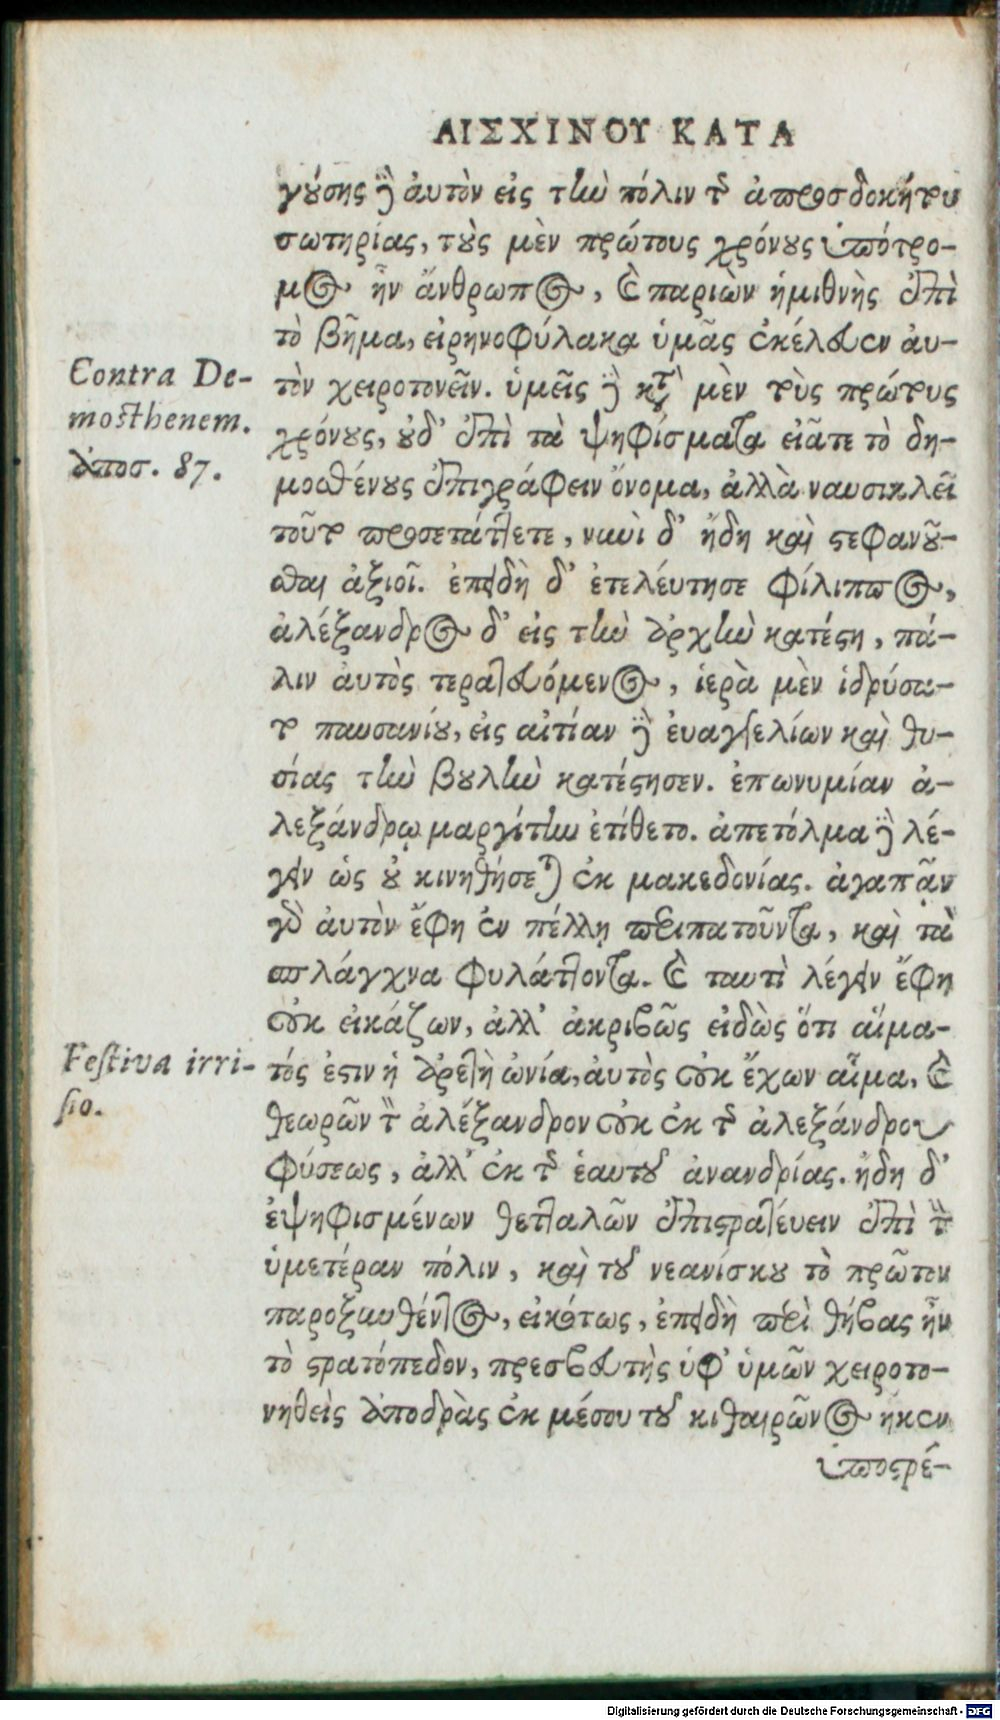 ΑΙΣΧΙΝΟΥ ΚΑΤΑ
γούσης δὲ αὐτὸν εἰς τὴν πόλιν τῆς ἀπροσδοκήτου
σωτηρίας, τοὺς μὲν πρώτους χρόνους ὑπότρο-
μος ἦν ἄνθρωπος, καὶ παριὼν ἡμιθνὴς ἐπὶ
τὸ βῆμα, εἰρηνοφύλακα ὑμᾶς ἐκέλευεν αὐ-
τὸν χειροτονεῖν. ὑμεῖς δὲ κατὰ μὲν τοὺς πρώτους
χρόνους, οὐδ' ἐπὶ τὰ ψηφίσματα εἰᾶτε τὸ δη-
μοσθένους ἐπιγράφειν ὄνομα, ἀλλὰ ναυσικλεῖ
τοῦτο προσετάττετε, νυνὶ δ' ἤδη καὶ στεφανοῦ-
σθαι ἀξιοῖ. ἐπειδὴ δ' ἐτελεύτησε φίλιππος,
ἀλέξανδρος δ' εἰς τὴν ἀρχὴν κατέστη, πά-
λιν αὐτὸς τερατευόμενος, ἱερὰ μὲν ἱδρύσα-
το παυσανίου, εἰς αἰτίαν δὲ εὐαγγελίων καὶ θυ-
σίας τὴν βουλὴν κατέστησεν. ἐπωνυμίαν ἀ-
λεξάνδρῳ μαργίτην ἐτίθετο. ἀπετόλμα δὲ λέ-
γειν ὡς οὐ κινηθήσεται ἐκ μακεδονίας. ἀγαπᾷν
γὰρ αὐτὸν ἔφη ἐν πέλλῃ περιπατοῦντα, καὶ τὰ
σπλάγχνα φυλάττοντα. καὶ ταυτὶ λέγειν ἔφη
οὐκ εἰκάζων, ἀλλ' ἀκριβῶς εἰδὼς ὅτι αἵμα-
τός ἐστιν ἡ ἀρετὴ ὠνία, αὐτὸς οὐκ ἔχων αἷμα, καὶ
θεωρῶν τὸν ἀλέξανδρον οὐκ ἐκ τῆς ἀλεξάνδρου
φύσεως, ἀλλ' ἐκ τῆς ἑαυτοῦ ἀνανδρίας. ἤδη δ'
ἐψηφισμένων θετταλῶν ἐπιστρατεύειν ἐπὶ τὴν
ὑμετέραν πόλιν, καὶ τοῦ νεανίσκου τὸ πρῶτον
παροξυνθέντος, εἰκότως, ἐπειδὴ περὶ θήβας ἦν
τὸ στρατόπεδον, πρεσβευτὴς ὑφ' ὑμῶν χειροτο-
νηθεὶς ἀποδρὰς ἐκ μέσου τοῦ κιθαιρῶνος ἧκεν
ὑποστρέ-
Contra De-
mosthenem.
ἀποσ. 87.
Festiva irri-
sio.
Digitalisierung gefördert durch die Deutsche Forschungsgemeinschaft - DFG